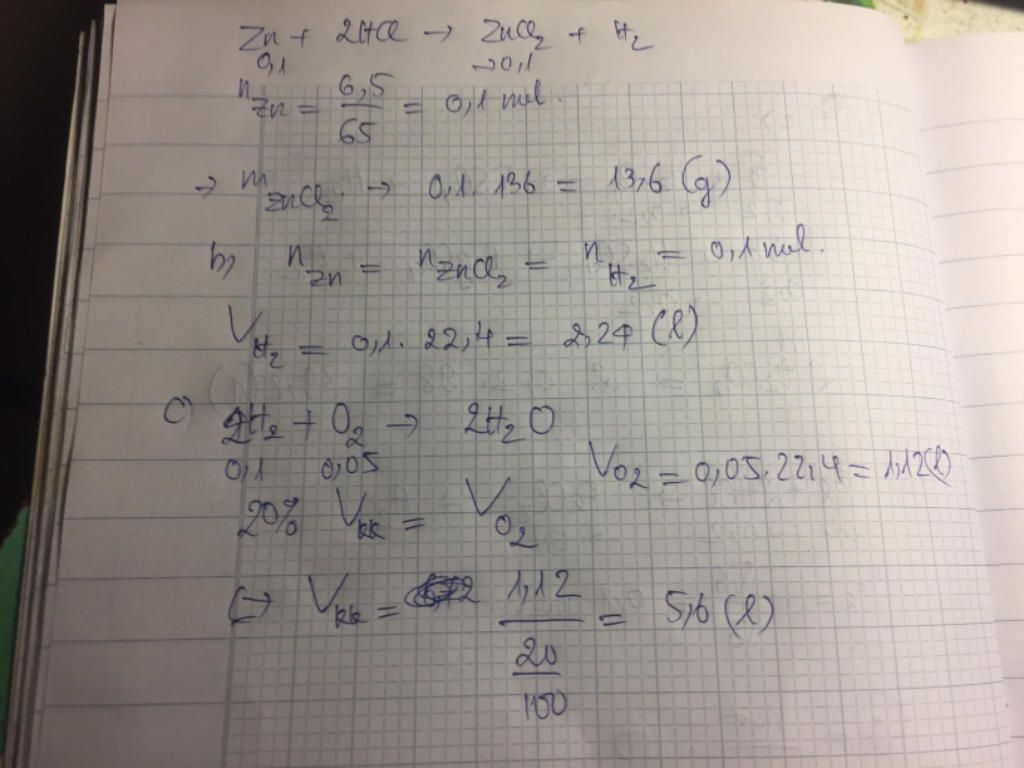 Zn + 2HCl → ZnCl₂ + H₂
0,1 → 0,1
n Zn = 6,5 / 65 = 0,1 mol.
→ m ZnCl₂ → 0,1. 136 = 13,6 (g)
b, n Zn = n ZnCl₂ = n H₂ = 0,1 mol.
V H₂ = 0,1. 22,4 = 2,24 (l)
c) 2H₂ + O₂ → 2H₂O
0,1 0,05 V O₂ = 0,05.22,4 = 1,12(l)
20% Vkk = V O₂
(→ Vkk = 1,12 / 20/100 = 5,6 (l)